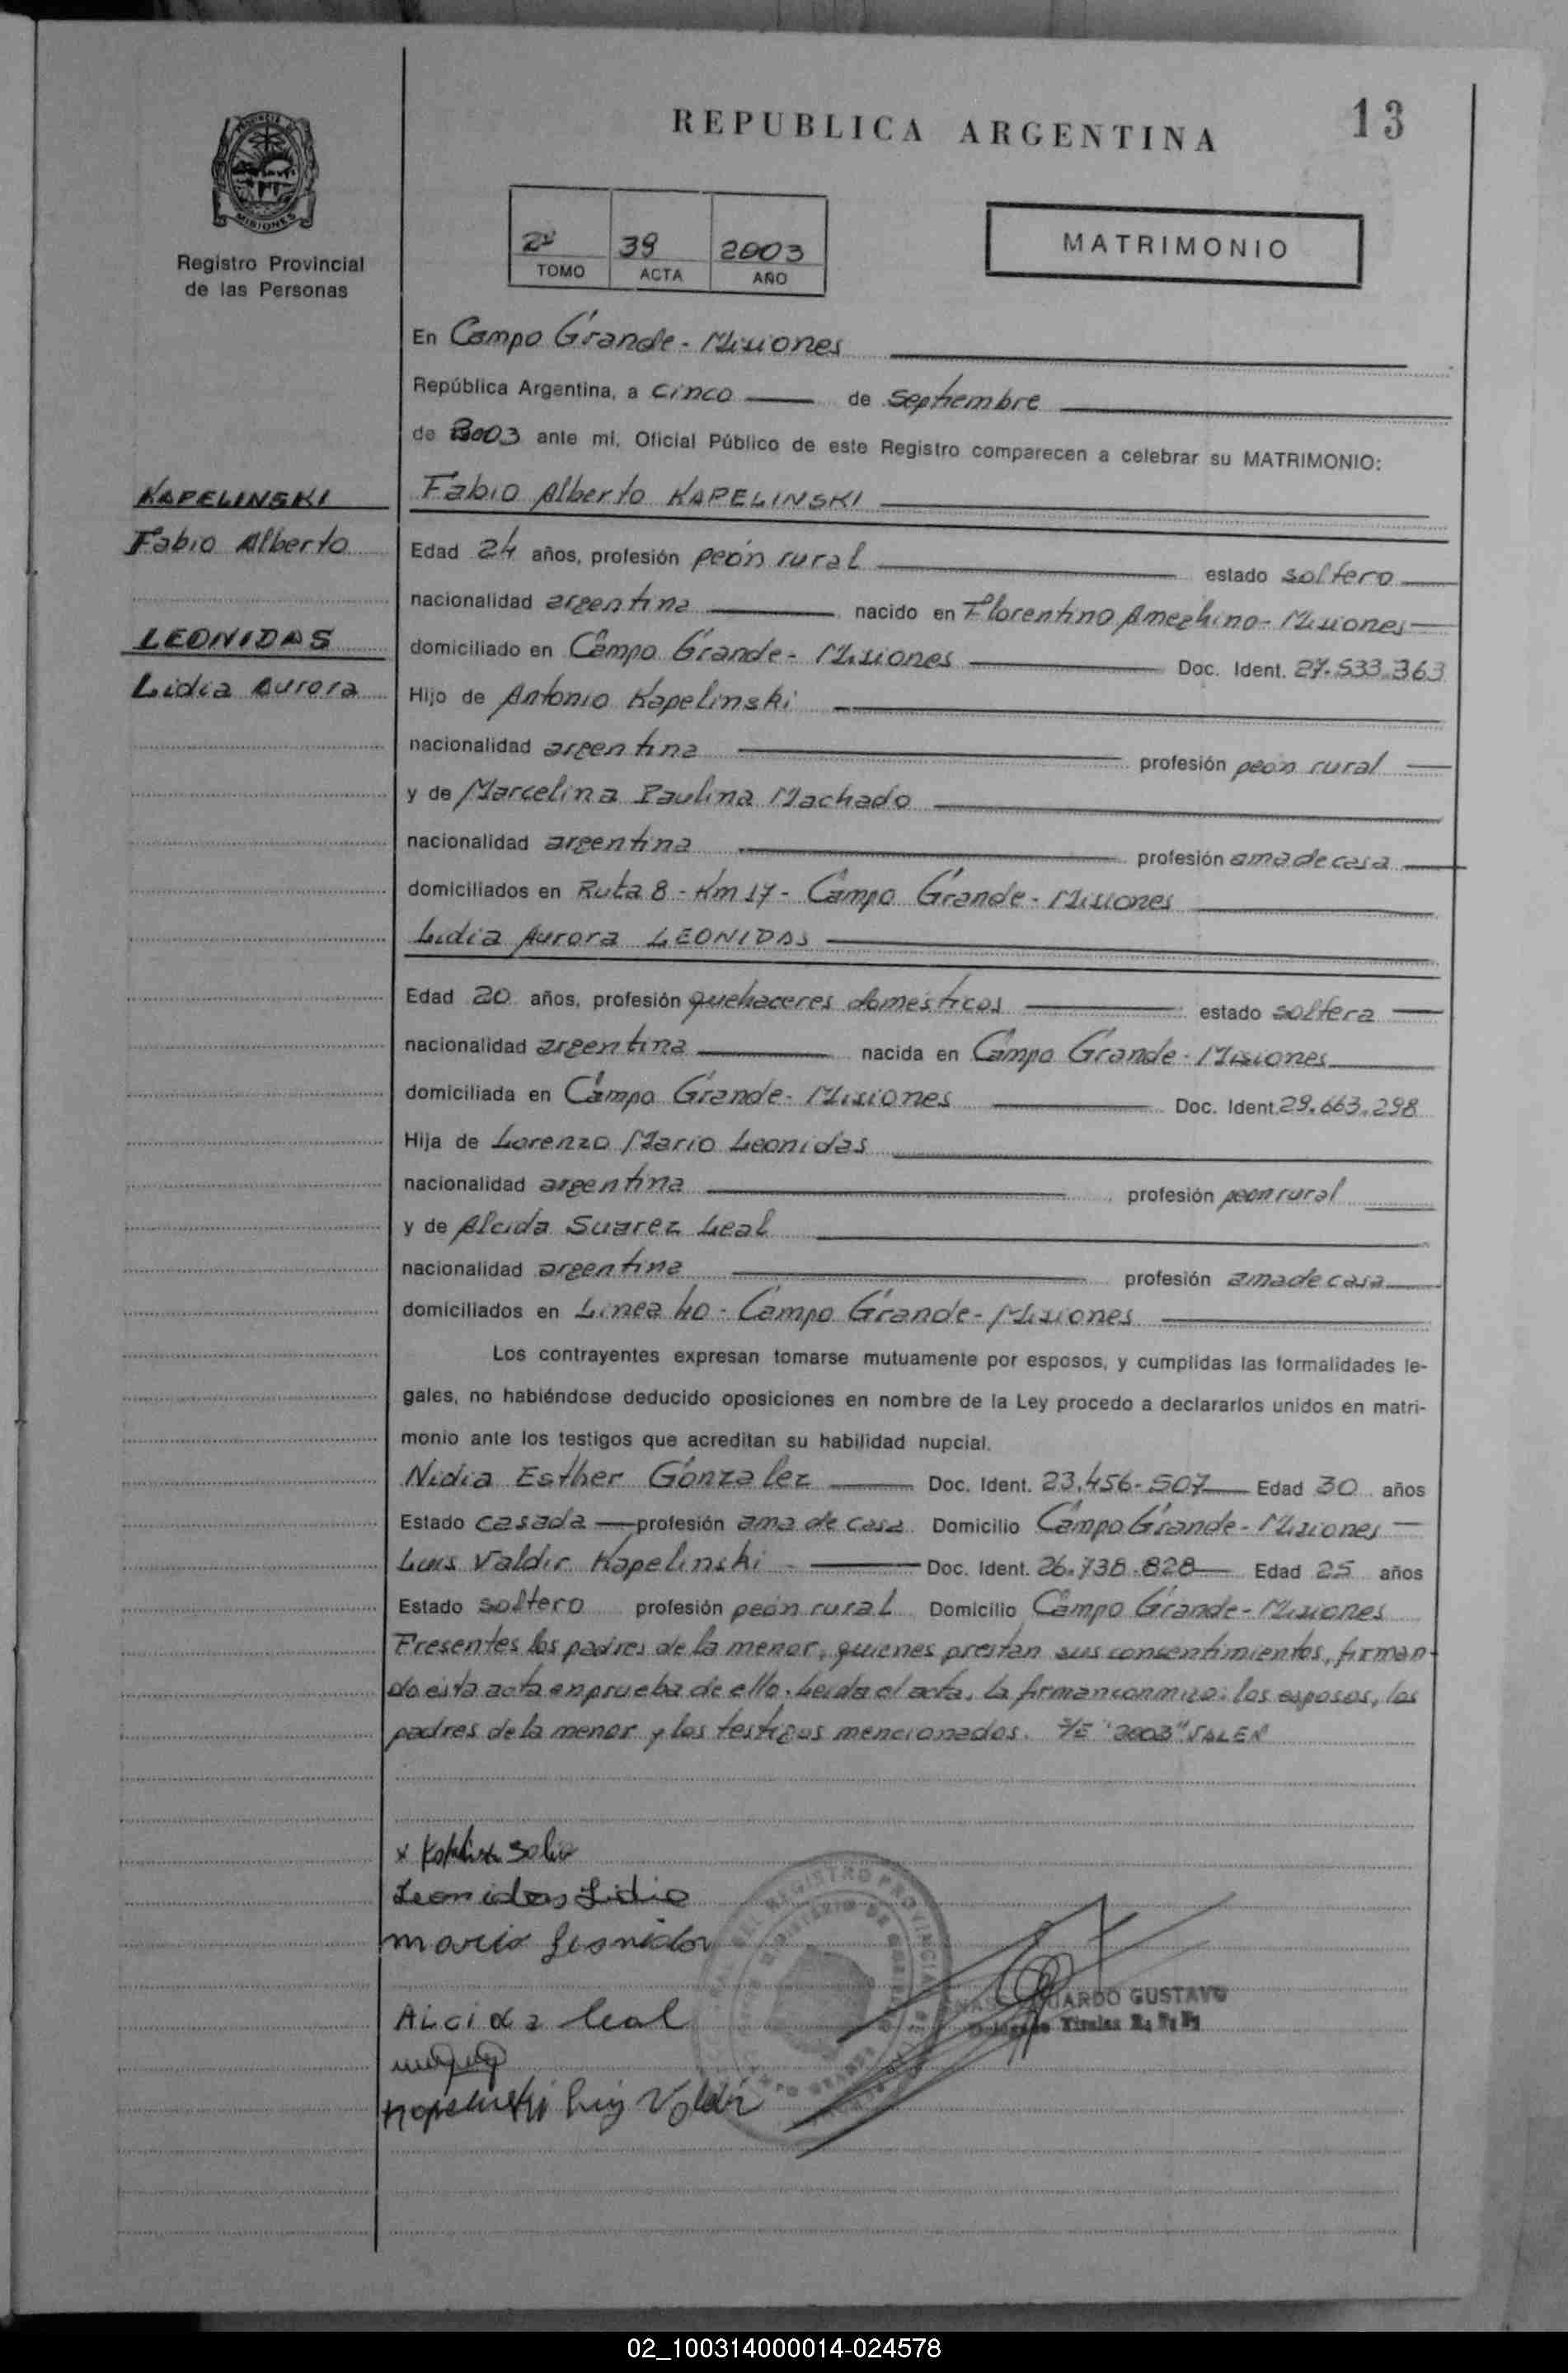 REPUBLICA ARGENTINA
13
MISIONES
Registro Provincial
de las Personas
2º 39 2003
TOMO ACTA AÑO
MATRIMONIO
En Campo Grande - Misiones
República Argentina, a cinco de septiembre
de 2003 ante mí, Oficial Público de este Registro comparecen a celebrar su MATRIMONIO:
KAPELINSKI
Fabio Alberto
LEONIDAS
Lidia Aurora
Fabio Alberto KAPELINSKI
Edad 24 años, profesión peón rural estado soltero
nacionalidad argentina nacido en Florentino Ameghino - Misiones
domiciliado en Campo Grande - Misiones Doc. Ident. 27.533.363
Hijo de Antonio Kapelinski
nacionalidad argentina profesión peón rural
y de Marcelina Paulina Machado
nacionalidad argentina profesión ama de casa
domiciliados en Ruta 8 - Km 17 - Campo Grande - Misiones
Lidia Aurora LEONIDAS
Edad 20 años, profesión quehaceres domésticos estado soltera
nacionalidad argentina nacida en Campo Grande - Misiones
domiciliada en Campo Grande - Misiones Doc. Ident. 29.663.298
Hija de Lorenzo Mario Leonidas
nacionalidad argentina profesión peon rural
y de Alcida Suarez Leal
nacionalidad argentina profesión ama de casa
domiciliados en Linea 40 - Campo Grande - Misiones
Los contrayentes expresan tomarse mutuamente por esposos, y cumplidas las formalidades le-
gales, no habiéndose deducido oposiciones en nombre de la Ley procedo a declararlos unidos en matri-
monio ante los testigos que acreditan su habilidad nupcial.
Nidia Esther Gonzalez Doc. Ident. 23.456.507 Edad 30 años
Estado casada profesión ama de casa Domicilio Campo Grande - Misiones
Luis Valdir Kapelinski Doc. Ident. 26.738.828 Edad 25 años
Estado soltero profesión peón rural Domicilio Campo Grande - Misiones
Presentes los padres de la menor, quienes prestan sus consentimientos, firman-
do esta acta en prueba de ello. Leida el acta, la firman conmigo: los esposos, los
padres de la menor y los testigos mencionados. S/E "2003" VALEN
x
Leonidas Lidia
mario Leonidas
Alcida Leal
Kapelinski Luis Valdir
REGISTRO PROVINCIAL
EDUARDO GUSTAVO
Delegado Titular R. P. P.
02_100314000014-024578